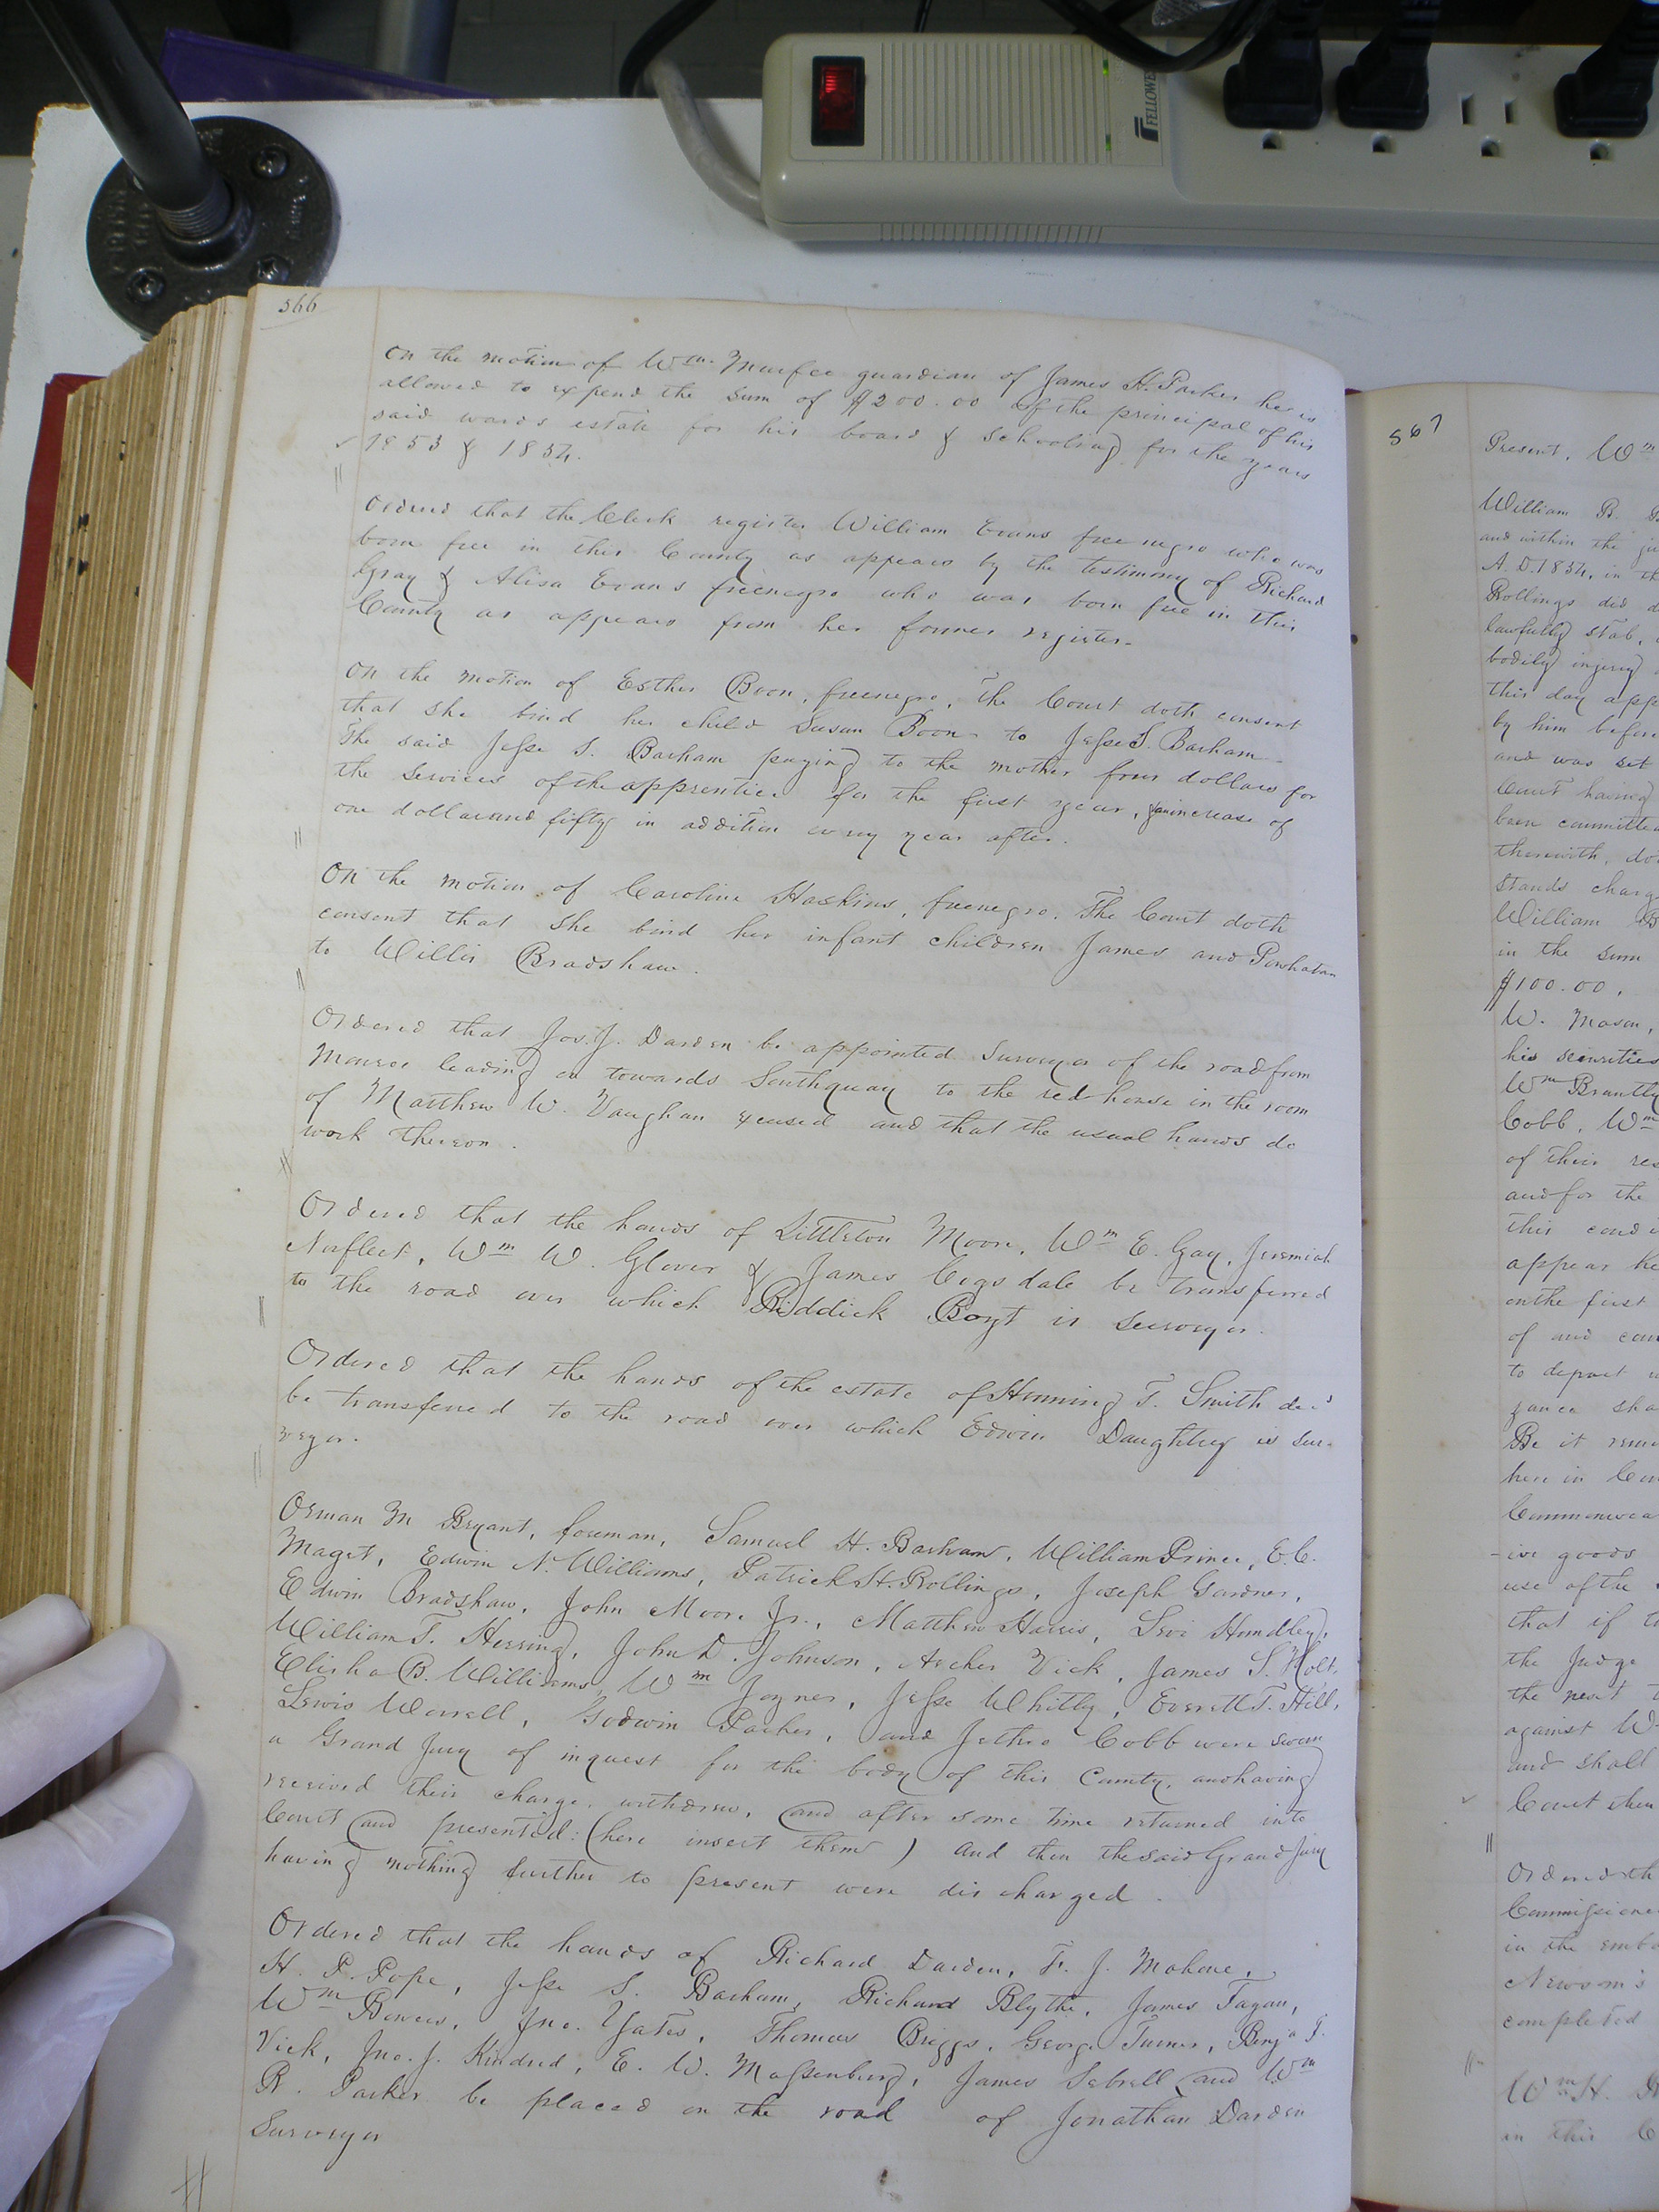 FELLOWES
566
On the motion of Wm. Murfee guardian of James H. Parker he is
allowed to expend the sum of $200.00 of the principal of his
said wards estate for his board & schooling for the years
1853 & 1854.
Ordered that the Clerk register William Evans free negro who was
born free in this County as appears by the testimony of Richard
Gray & Alisa Evans freenegro who was born free in this
County as appears from her former register.
On the motion of Esther Boon, freenegro, The Court doth consent
that she bind her child Susan Boon to Jesse S. Barham
The said Jesse S. Barham paying to the mother four dollars for
the services of the apprentice for the first year, & an increase of
one dollar and fifty in addition every year after.
On the motion of Caroline Haskins, freenegro. The Court doth
consent that she bind her infant children James and Powhatan
to Willis Bradshaw.
Ordered that Jos. J. Darden be appointed Surveyor of the road from
Monroe leading on towards Southquay to the red house in the room
of Matthew W. Vaughan excused and that the usual hands do
work thereon.
Ordered that the hands of Littleton Moore, Wm E. Gay, Jeremiah
Norfleet, Wm W. Glover & James Cogsdale be transferred
to the road over which Riddick Boyt is surveyor.
Ordered that the hands of the estate of Henning T. Smith decd
be transferred to the road over which Edwin Daughtrey is sur-
veyor.
Orman M Bryant, foreman, Samuel H. Barham, William Prince, E.C.
Maget, Edwin N. Williams, Patrick H. Rollings, Joseph Gardner,
Edwin Bradshaw, John Moore Jr., Matthew Harris, Levi Hundley,
William T. Herring, John D. Johnson, Archer Vick, James S. Holt,
Elisha B. Williams, Wm Joyner, Jesse Whitly, Everett T. Hill,
Lewis Worrell, Godwin Parker, and Jethro Cobb were sworn
a Grand Jury of inquest for the body of this County, and having
received their charge, withdrew, and after some time returned into
Court and presented: (here insert them) And then the said Grand Jury
having nothing further to present were discharged.
Ordered that the hands of Richard Darden, F. J. Mahone,
H. P. Pope, Jesse S. Barham, Richard Blythe, James Fagan,
Wm Bowers, Jno. Yates, Thomas Briggs, George Turner, Benja J.
Vick, Jno. J. Kindred, E. W. Massenburg, James Sebrell and Wm
R. Parker be placed on the road of Jonathan Darden
Surveyor
567
Present, Wm
William B.
and within the
A. D. 1854, in
Rollings did
lawfully stab,
bodily injury
this day
by him before
and was set
Court having
been
therewith,
stands
William
in the sum
$100.00,
W. Mason,
his securities
Wm Brantly
Cobb, Wm
of their
and for the
this
appear
on the first
of and
to depart
Be it
here in
goods
use of the
that if
the Judge
the next
against
and shall
Court then
in the
Newsom's
completed
Wm H.
in this